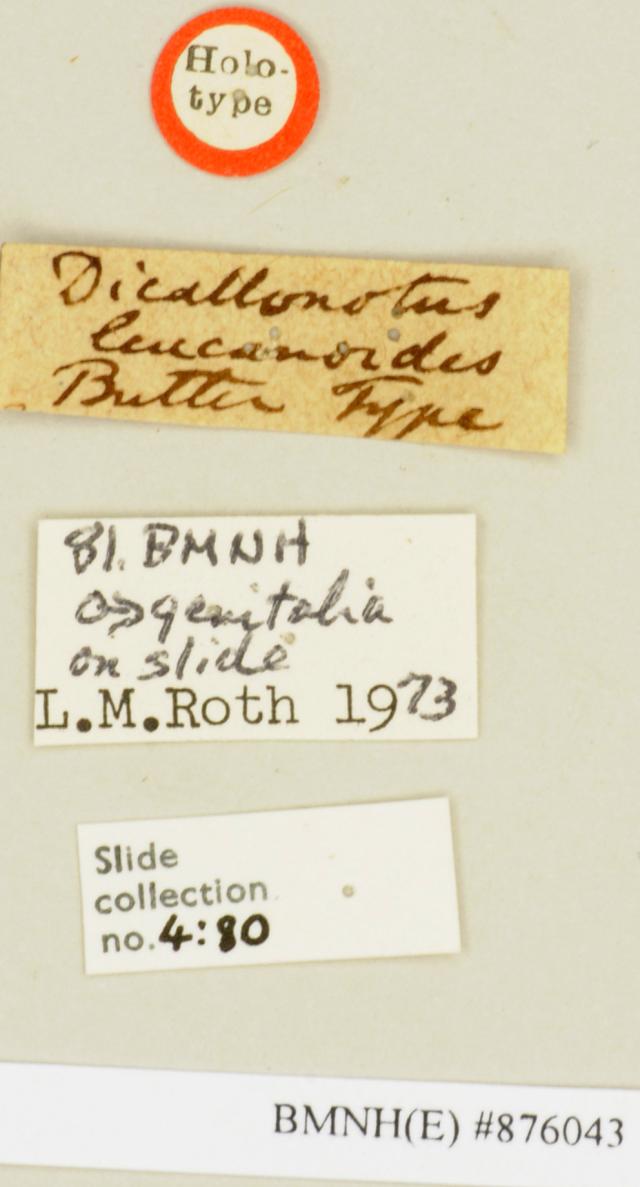 Holo-
type
Dicallonotus
leucanoides
Butter Type
81. BMNH
♂ genitalia
on slide
L.M.Roth 1973
Slide
collection
no. 4:80
BMNH(E) #876043